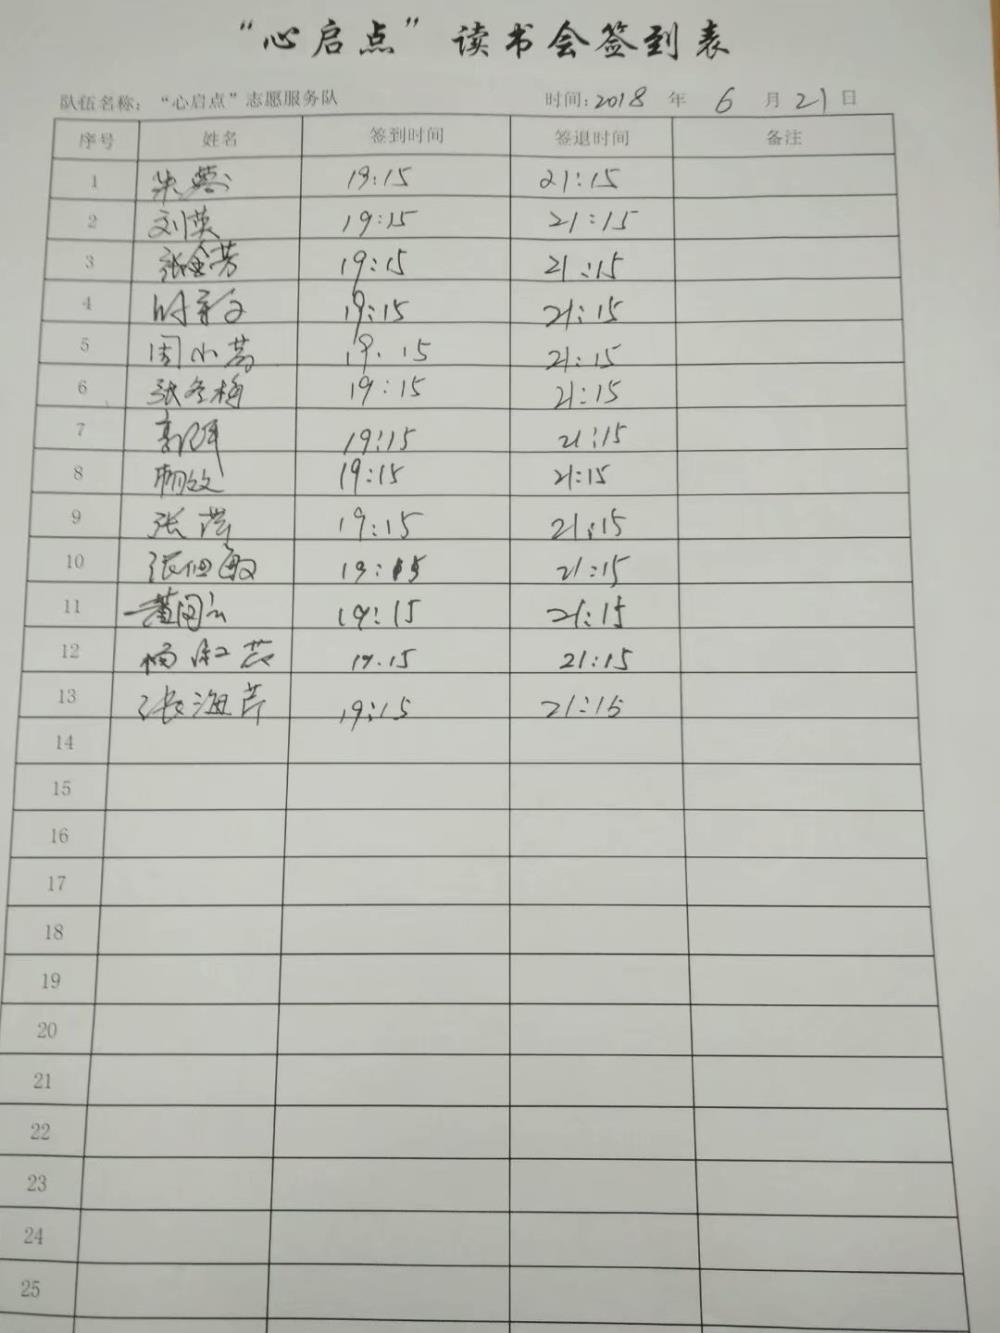 “心启点”读书会签到表
队伍名称：“心启点”志愿服务队 时间：2018 年 6 月 21 日
序号 姓名 签到时间 签退时间 备注
1 朱 19:15 21:15
2 刘英 19:15 21:15
3 张金芳 19:15 21:15
4 时 19:15 21:15
5 周小 19.15 21:15
6 张冬梅 19:15 21:15
7 郭 19:15 21:15
8 19:15 21:15
9 张 19:15 21:15
10 张 敏 19:15 21:15
11 董 19:15 21:15
12 杨 芸 19.15 21:15
13 张海芹 19:15 21:15
14
15
16
17
18
19
20
21
22
23
24
25